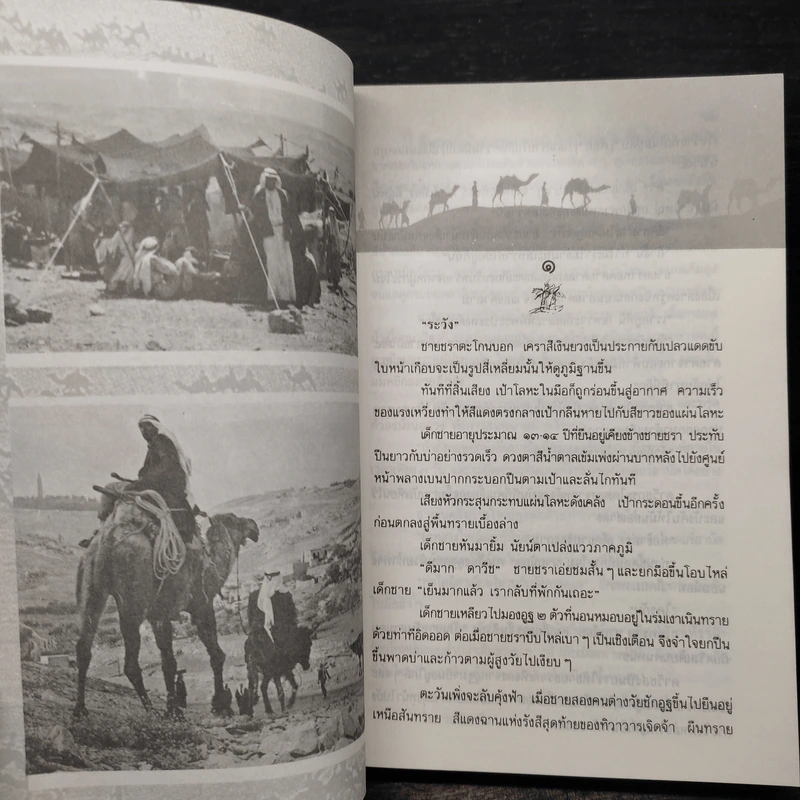 ๑
"ระวัง"
ชายชราตะโกนบอก เคราสีเงินยวงเป็นประกายกับเปลวแดดขับ
ใบหน้าเกือบจะเป็นรูปสี่เหลี่ยมนั้นให้ดูภูมิฐานขึ้น
ทันทีที่สิ้นเสียง เป้าโลหะในมือก็ถูกร่อนขึ้นสู่อากาศ ความเร็ว
ของแรงเหวี่ยงทำให้สีแดงตรงกลางเป้ากลืนหายไปกับสีขาวของแผ่นโลหะ
เด็กชายอายุประมาณ ๑๓-๑๔ ปีที่ยืนอยู่เคียงข้างชายชรา ประทับ
ปืนยาวกับบ่าอย่างรวดเร็ว ดวงตาสีน้ำตาลเข้มเพ่งผ่านบากหลังไปยังศูนย์
หน้าพลางเบนปากกระบอกปืนตามเป้าและลั่นไกทันที
เสียงหัวกระสุนกระทบแผ่นโลหะดังเคล้ง เป้ากระดอนขึ้นอีกครั้ง
ก่อนตกลงสู่พื้นทรายเบื้องล่าง
เด็กชายหันมายิ้ม นัยน์ตาเปล่งแววภาคภูมิ
"ดีมาก ดาวีช" ชายชราเอ่ยชมสั้น ๆ และยกมือขึ้นโอบไหล่
เด็กชาย "เย็นมากแล้ว เรากลับที่พักกันเถอะ"
เด็กชายเหลียวไปมองอูฐ ๒ ตัวที่นอนหมอบอยู่ในร่มเงาเนินทราย
ด้วยท่าทีอิดออด ต่อเมื่อชายชราบีบไหล่เบา ๆ เป็นเชิงเตือน จึงจำใจยกปืน
ขึ้นพาดบ่าและก้าวตามผู้สูงวัยไปเงียบ ๆ
ตะวันเพิ่งจะลับคุ้งฟ้า เมื่อชายสองคนต่างวัยชักอูฐขึ้นไปยืนอยู่
เหนือสันทราย สีแดงฉานแห่งรังสีสุดท้ายของทิวาวารเจิดจ้า ผืนทราย